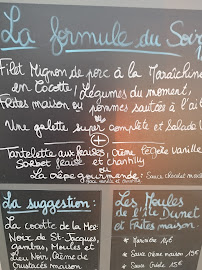 La formule du Soir
Filet Mignon de porc à la Maraîchine
en Cocotte, Légumes du moment,
Frites maison ou pommes sautées à l'ail
ou
Une galette super complète et Salade
+
Tartelette aux fraises, Crème vanille
Sorbet fraise et chantilly
ou
La crêpe gourmande: Sauce chocolat
La suggestion:
La cocotte de la Mer
Noix de St-Jacques,
Gambas, Moules et
Lieu Noir, Crème de
Crustacés maison
Les Moules
de l'île Dumet
et Frites maison:
Marinière 14€
Sauce crème maison 15€
Sauce 15€